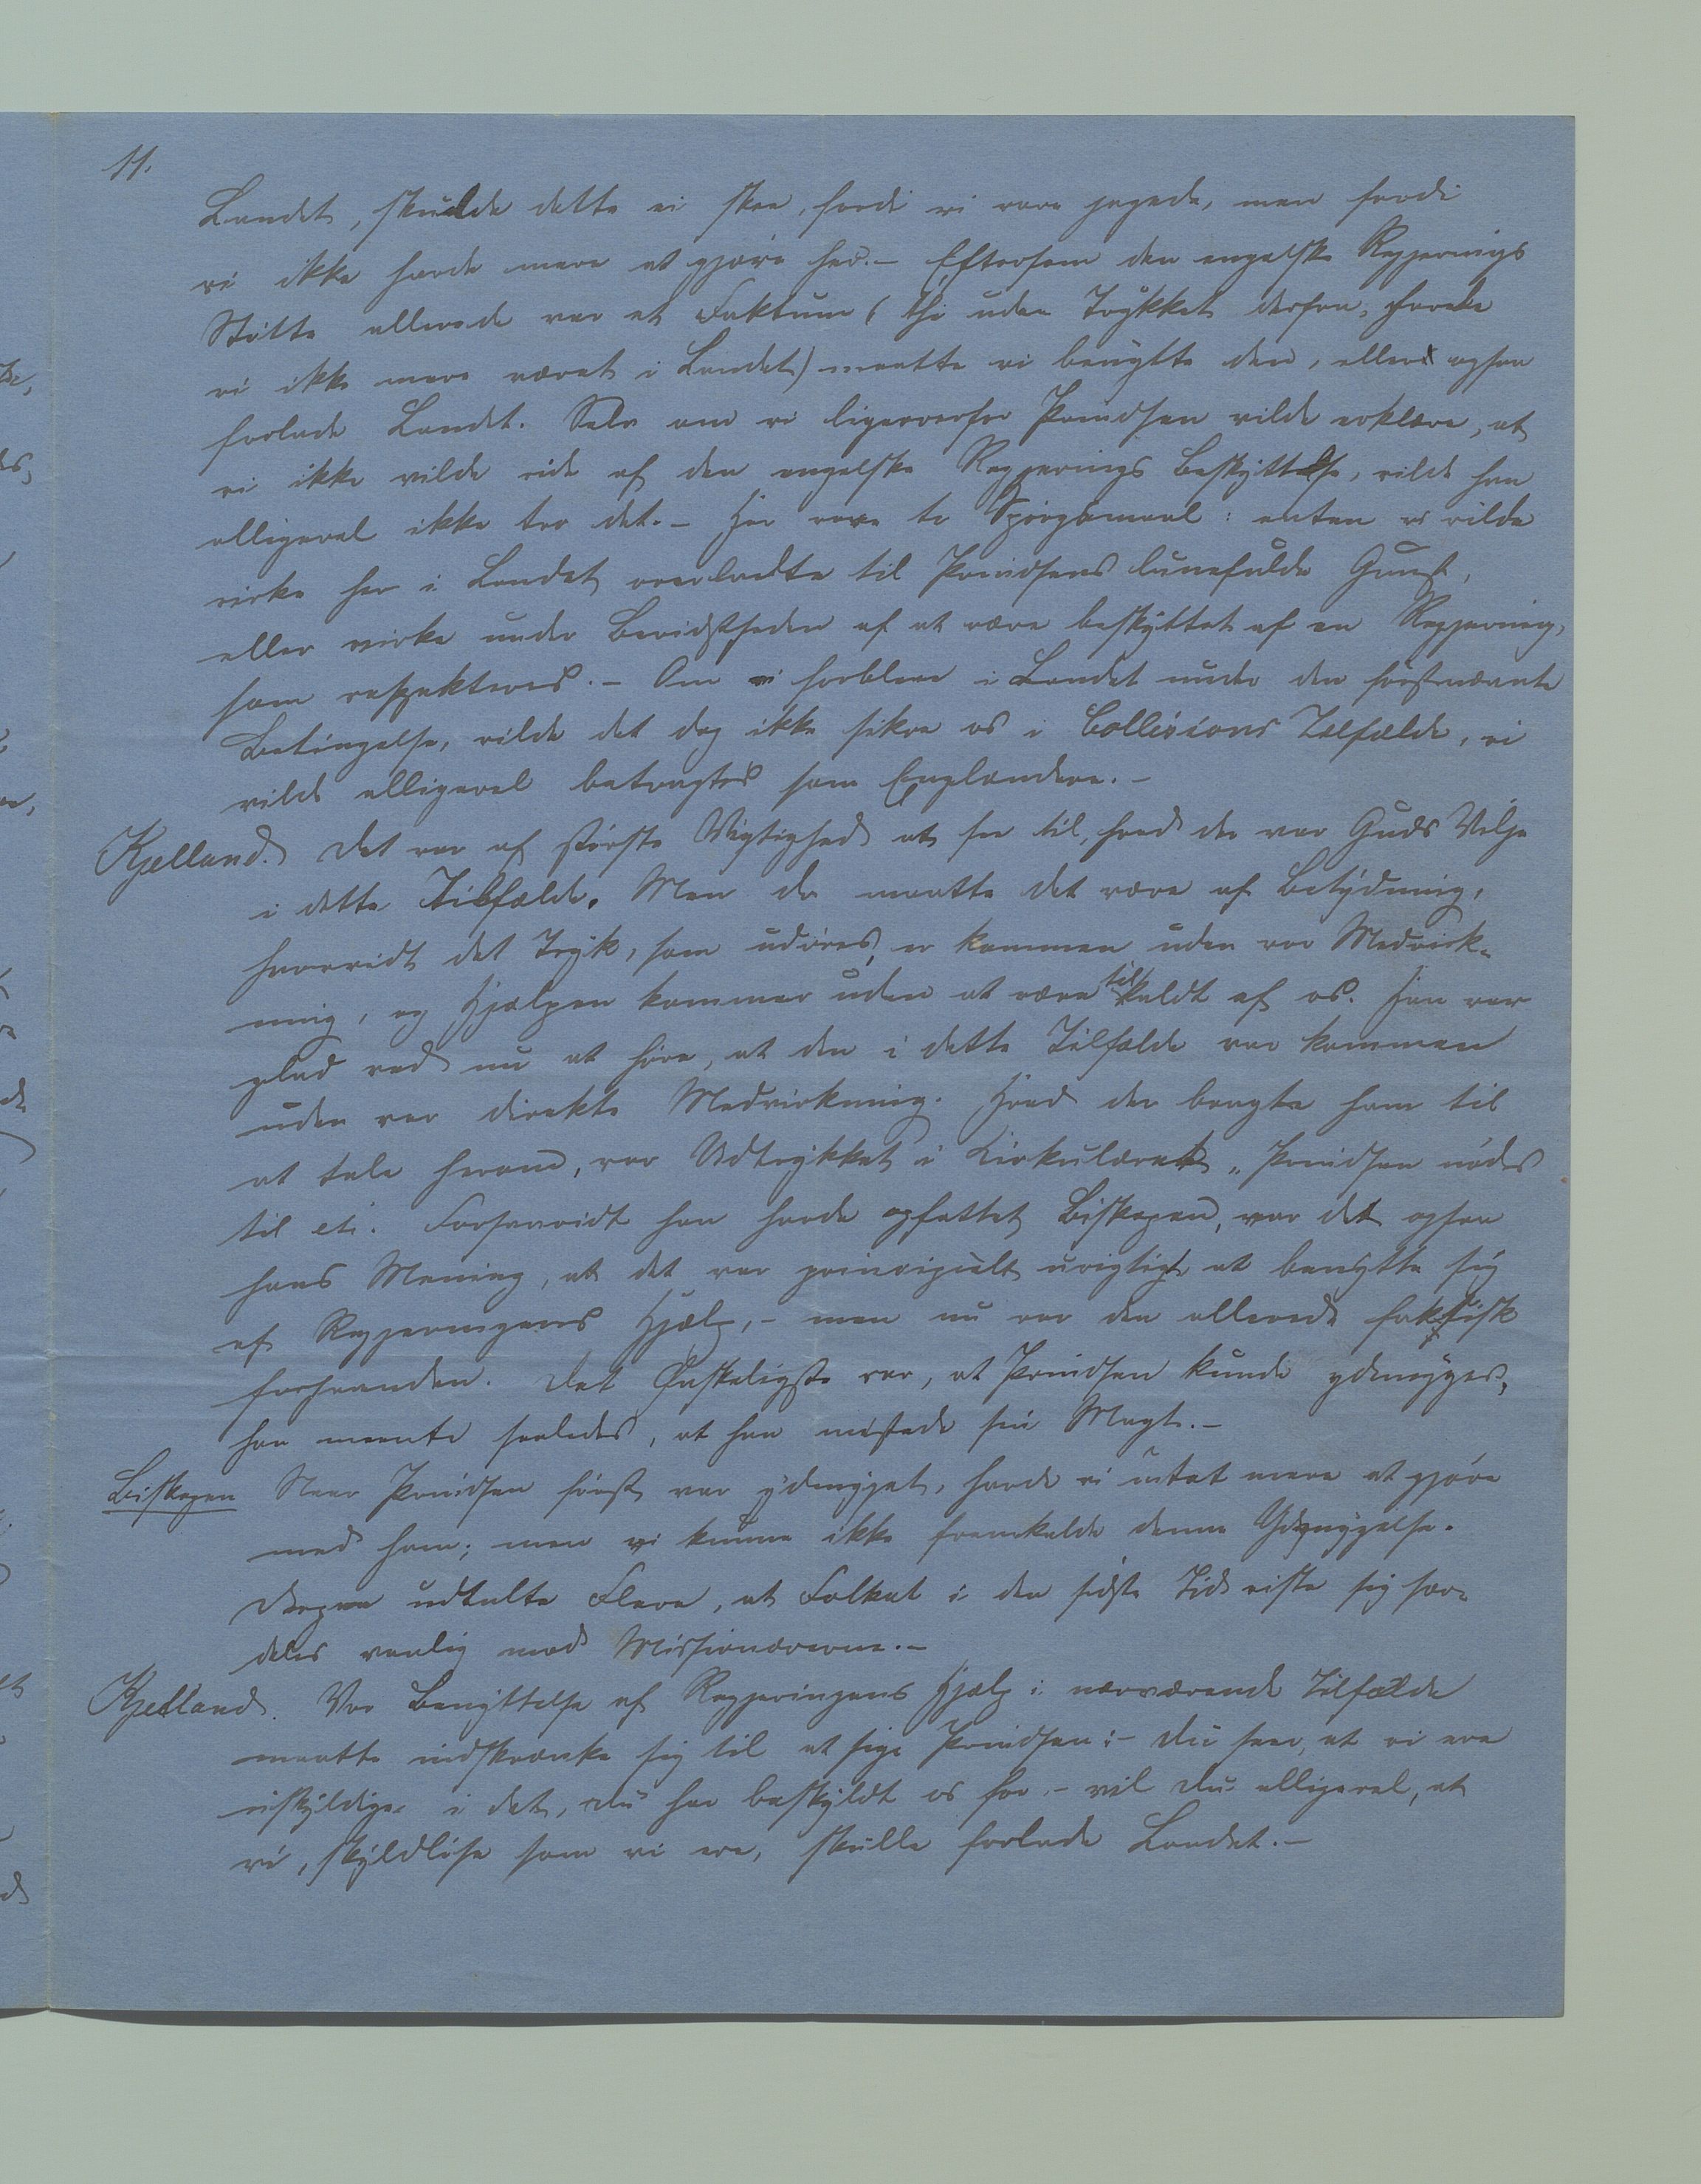 11.
Landet, skulde dette ei skee, fordi vi vare jagede, men fordi
vi ikke havde mere at gjøre her. – Eftersom den engelske Regjerings
Støtte allerede var et Faktum (thi uden Trykket derfra, havde
vi ikke mere været i Landet) maatte vi benytte den, eller ogsaa
forlade Landet. Selv om vi ligeoverfor Panidsen vilde erklære, at
vi ikke vilde vide af den engelske Regjerings Beskyttelse, vilde han
alligevel ikke tro det. – Her vare to Spørgsmaal: enten vi vilde
virke her i Landet overladte til Panidsens lunefulde Gunst,
eller virke under Bevidstheden af at være beskyttet af en Regjering,
som respekteres. – Om vi forbleve i Landet under den førstnævnte
Betingelse, vilde det dog ikke sikre os i Collisions Tilfælde, vi
vilde alligevel betragtes som Englændere. –
Kjelland. Det var af største Vigtighed at see til, hvad der var Guds Vilje
i dette Tilfælde. Men da maatte det være af Betydning,
hvorvidt det Tryk, som udøves, er kommen uden vor Medvirk-
ning, og Hjælpen kommer uden at være tilkaldt af os. Han var
glad ved nu at høre, at den i dette Tilfælde var kommen
uden vor direkte Medvirkning. Hvad der bragte ham til
at tale herom, var Udtrykket i Cirkulæret „Panidsen nødes
til etc. Forsaavidt han havde opfattet Biskopen, var det ogsaa
hans Mening, at det var principielt urigtigt at benytte sig
af Regjeringens Hjælp, – men nu var den allerede faktisk
forhaanden. Det Ønskeligste var, at Panidsen kunde ydmyges,
han meente saaledes, at han mistede sin Magt. –
Biskopen Naar Panidsen først var ydmyget, havde vi intet mere at gjøre
med ham; men vi kunne ikke fremkalde denne Ydmygelse.
Derpaa udtalte Flere, at Folket i den sidste Tid viste sig sær-
deles venlig mod Missionærerne. –
Kjelland. Vor Benyttelse af Regjeringens Hjælp i nærværende Tilfælde
maatte indskrænke sig til at sige Panidsen: – Du seer, at vi ere
uskyldige i det, du har beskyldt os for, – vil du alligevel, at
vi, skyldløse som vi ere, skulle forlade Landet. –